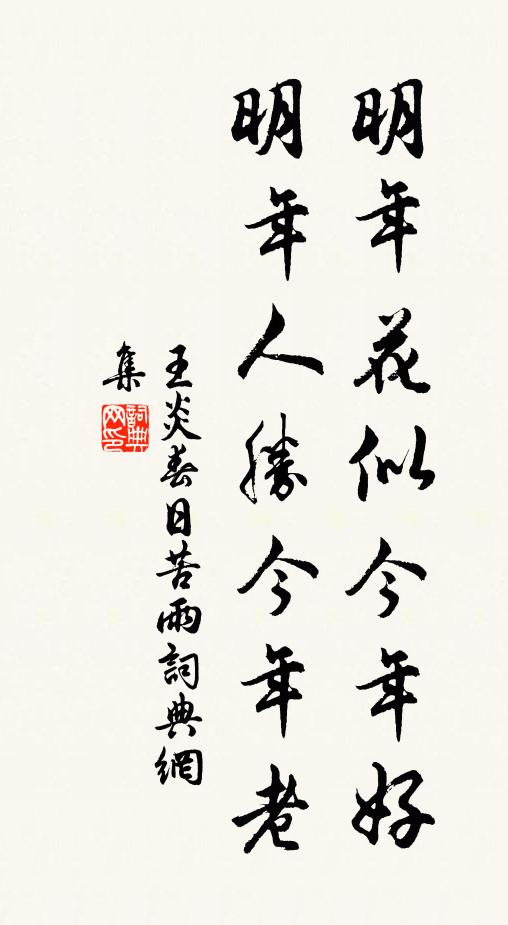 明年花似今年好
明年人勝今年老
王炎春日苦雨詞典網
集
詞典
网印